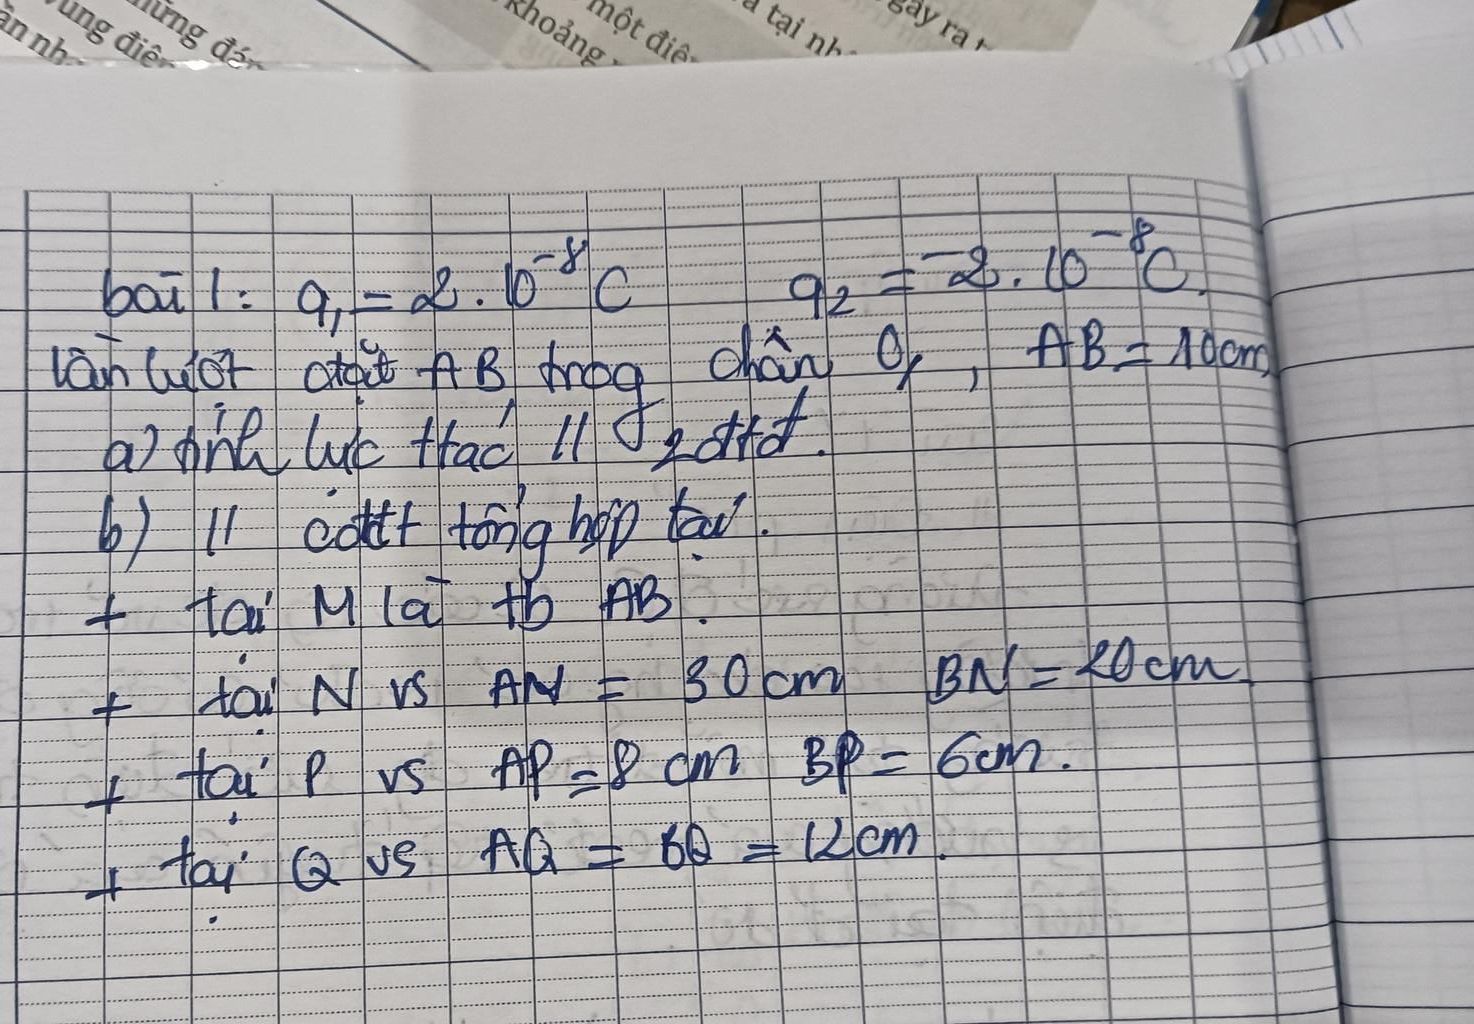 ửng đến
ùng điện
ần nh
khoảng
một điệ
a tại nh
gây ra
bài 1: q₁ = 2.10⁻⁸ C q₂ = -2.10⁻⁸ C.
lần lượt đặt AB trog chân 0, AB = 10cm
a) tính lực ttác // 2 đtđ.
b) // cđtt tổng hợp tại.
+ tại M là tb AB.
+ tại N vs AN = 30cm BN = 20cm
+ tại P vs AP = 8 cm BP = 6cm.
+ tại Q vs AQ = BQ = 12cm.